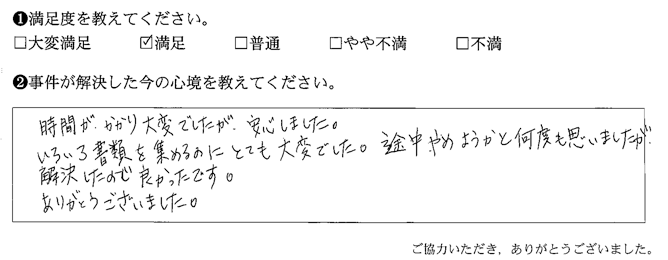 ❶満足度を教えてください。
□大変満足 ☑満足 □普通 □やや不満 □不満
❷事件が解決した今の心境を教えてください。
時間がかかり大変でしたが、安心しました。
いろいろ書類を集めるのにとても大変でした。途中やめようかと何度も思いましたが
解決したので良かったです。
ありがとうございました。
ご協力いただき，ありがとうございました。